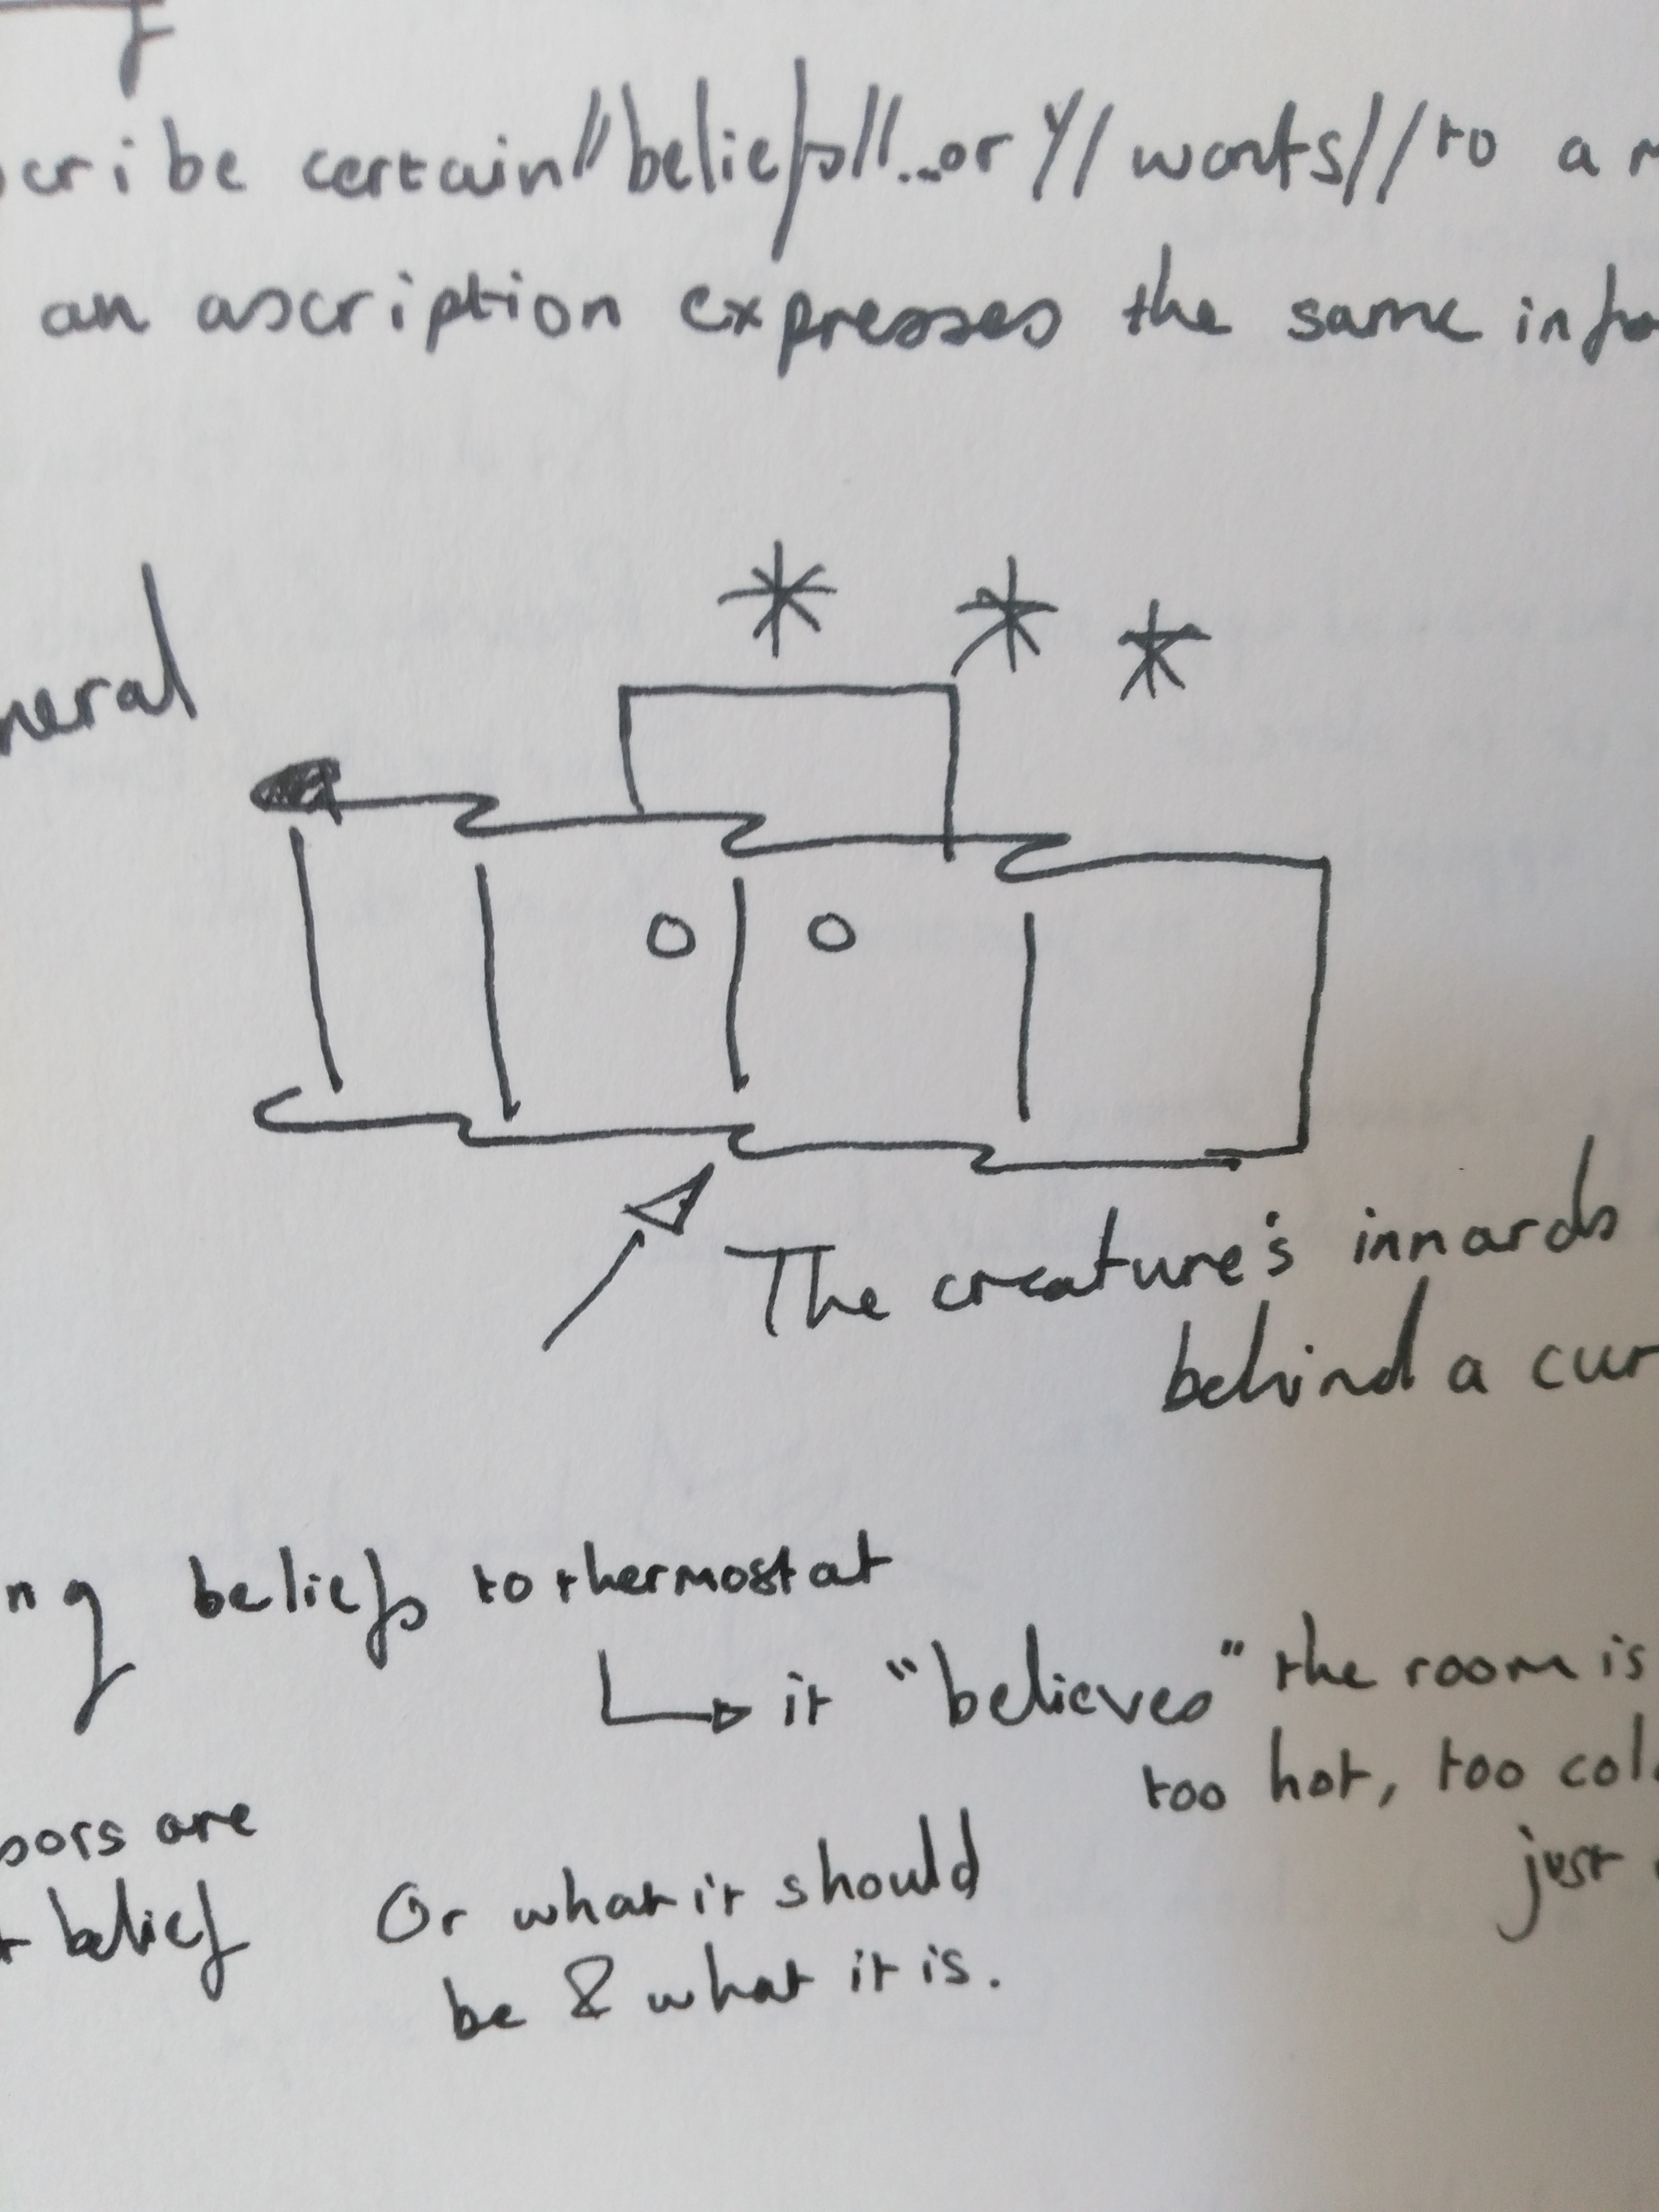 cribe certain//beliefs//...or //wants//to a m
an ascription expresses the same info
neral
The creature's innards
behind a cur
ng beliefs to thermostat
it "believes" the room is
too hot, too col
just
oors are
belief
Or what it should
be & what it is.